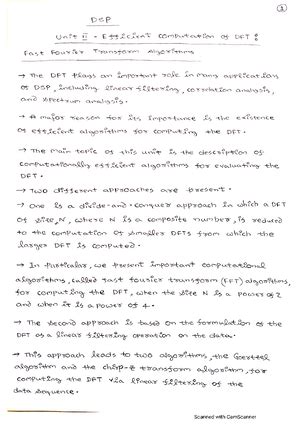 1
DSP
Unit II - Efficient Computation of DFT :
Fast Fourier Transform Algorithms
→ The DFT plays an important role in many applications
of DSP, including linear filtering, correlation analysis,
and spectrum analysis.
→ A major reason for its importance is the existence
of efficient algorithms for computing the DFT.
→ The main topic of this unit is the description of
computationally efficient algorithms for evaluating the
DFT.
→ Two different approaches are present.
→ One is a divide-and-conquer approach in which a DFT
of size N, where N is a composite number, is reduced
to the computation of smaller DFTs from which the
larger DFT is computed.
→ In particular, we present important computational
algorithms, called fast fourier transform (FFT) algorithms,
for computing the DFT, when the size N is a power of 2
and when it is a power of 4.
→ The second approach is based on the formulation of the
DFT as a linear filtering operation on the data.
→ This approach leads to two algorithms, the Goertzel
algorithm and the chirp-z transform algorithm, for
computing the DFT via linear filtering of the
data sequence.
Scanned with CamScanner